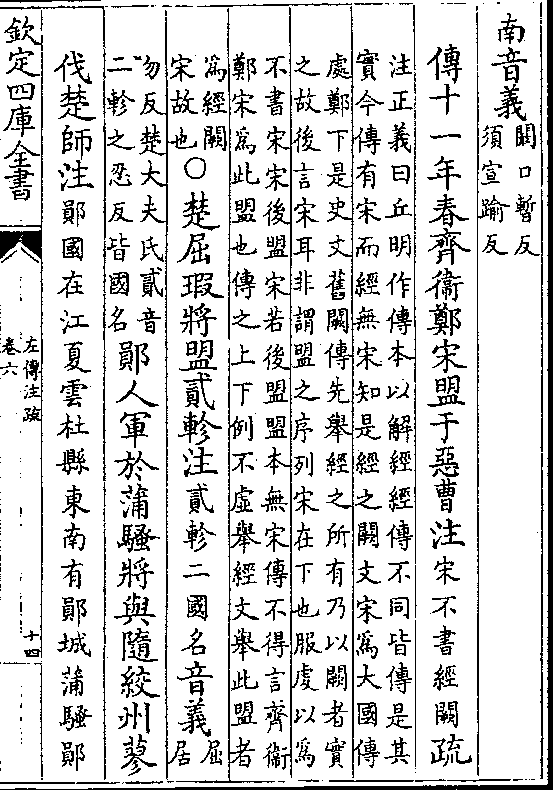 南音義闞口暫反
須宣踰反
傳十一年春齊衞鄭宋盟于惡曹注宋不書經闕疏
注正義曰丘明作傳本以解經經傳不同皆傳是其
實今傳有宋而經無宋知是經之闕文宋爲大國傳
處鄭下是史文舊闕傳先舉經之所有乃以闕者實
之故後言宋耳非謂盟之序列宋在下也服虔以爲
不書宋宋後盟宋若後盟盟本無宋傳不得言齊衞
鄭宋爲此盟也傳之上下例不虛舉經文舉此盟者
爲經闕
宋故也〇楚屈瑕將盟貳軫注貳軫二國名音義屈
居
勿反楚大夫氏貳音
二軫之忍反皆國名鄖人軍於蒲騷將與隨絞州蓼
伐楚師注鄖國在江夏雲杜縣東南有鄖城蒲騷鄖
欽定四庫全書
左傳注疏
卷六
十四